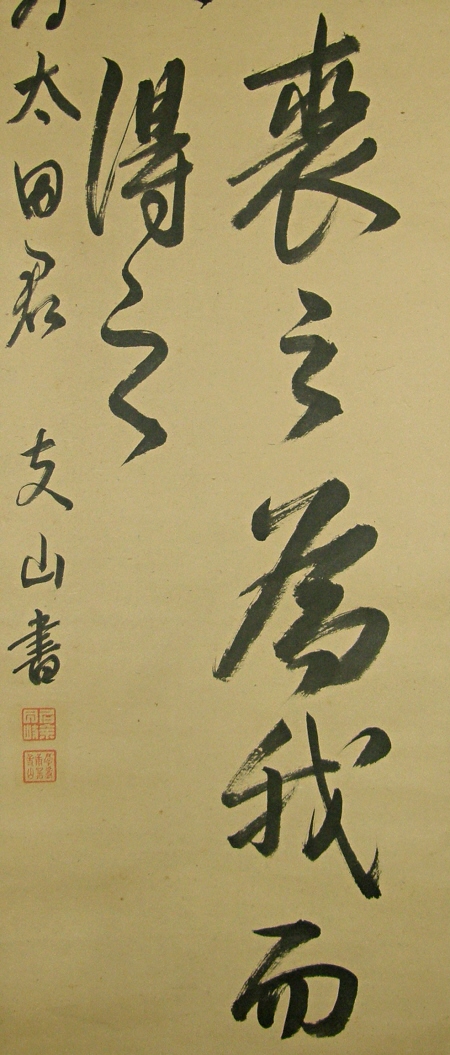 喪之為我而
得之
太田君 支山書